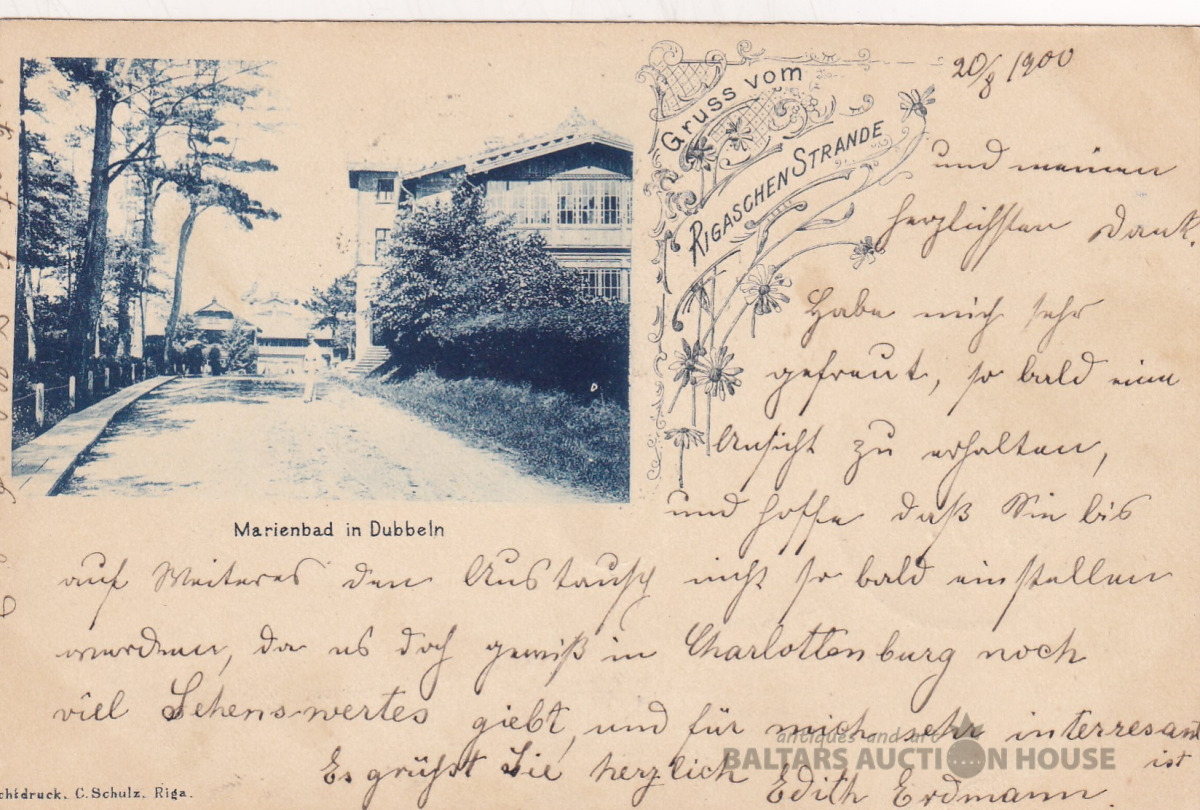 20/8 1900
Gruss vom
RIGASCHEN STRANDE
und meinen
herzlichsten Dank.
Habe mich sehr
gefreut, so bald eine
Ansicht zu erhalten,
und hoffe daß Sie bis
auf Weiteres den Austausch nicht so bald einstellen
werden, da es doch gewiß in Charlottenburg noch
viel Sehenswertes giebt, und für mich sehr interresant
ist
Es grüßt Sie herzlich Edith Erdmann.
Marienbad in Dubbeln
chtdruck. C. Schulz. Riga.
antiques and art
BALTARS AUCTION HOUSE